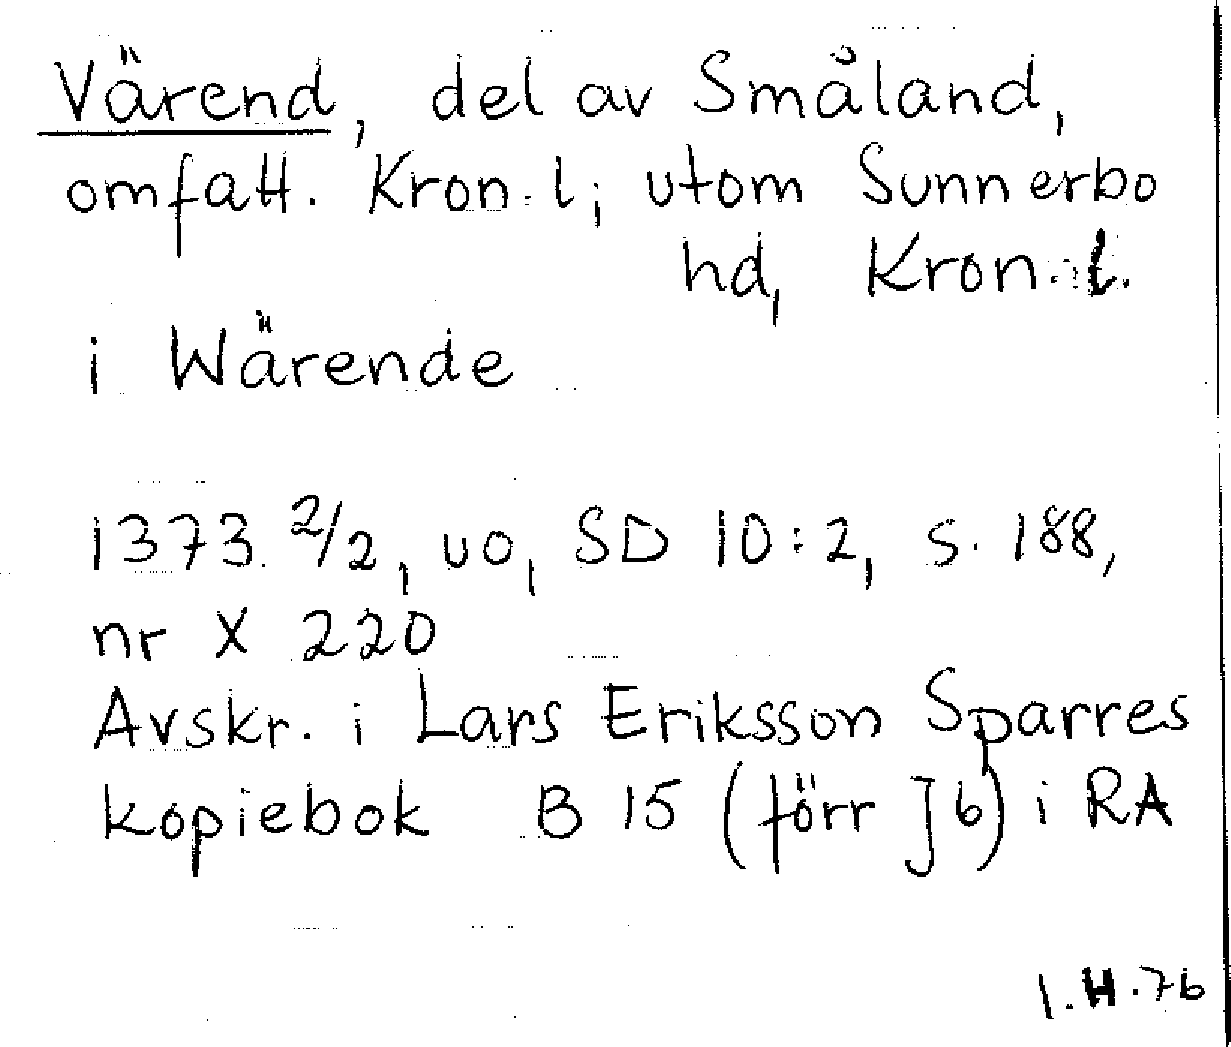 Värend, del av Småland,
omfatt. Kron. l; utom Sunnerbo
hd, Kron. l.
i Wärende
1373 2/2, uo, SD 10:2, s. 188,
nr X 220
Avskr. i Lars Eriksson Sparres
kopiebok B 15 (förr J6) i RA
I.H.76